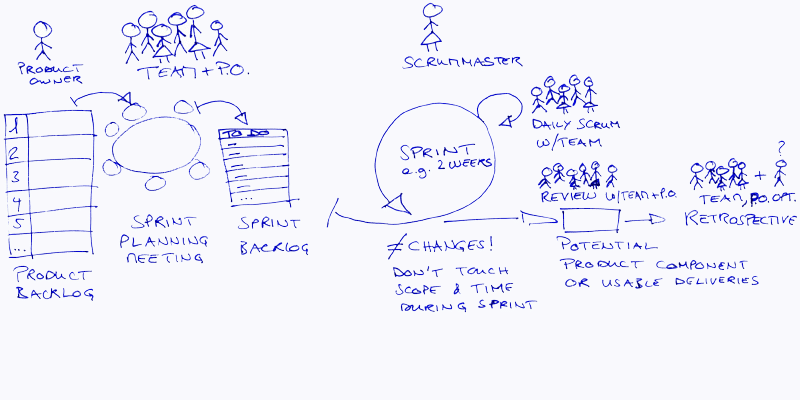 PRODUCT
OWNER
TEAM + P.O.
1
2
3
4
5
...
PRODUCT
BACKLOG
SPRINT
PLANNING
MEETING
TO DO
...
SPRINT
BACKLOG
SCRUMMASTER
SPRINT
e.g. 2 WEEKS
DAILY SCRUM
W/TEAM
≠ CHANGES!
DON'T TOUCH
SCOPE & TIME
DURING SPRINT
REVIEW W/TEAM+P.O.
POTENTIAL
PRODUCT COMPONENT
OR USABLE DELIVERIES
+ ?
TEAM, P.O. OPT.
RETROSPECTIVE